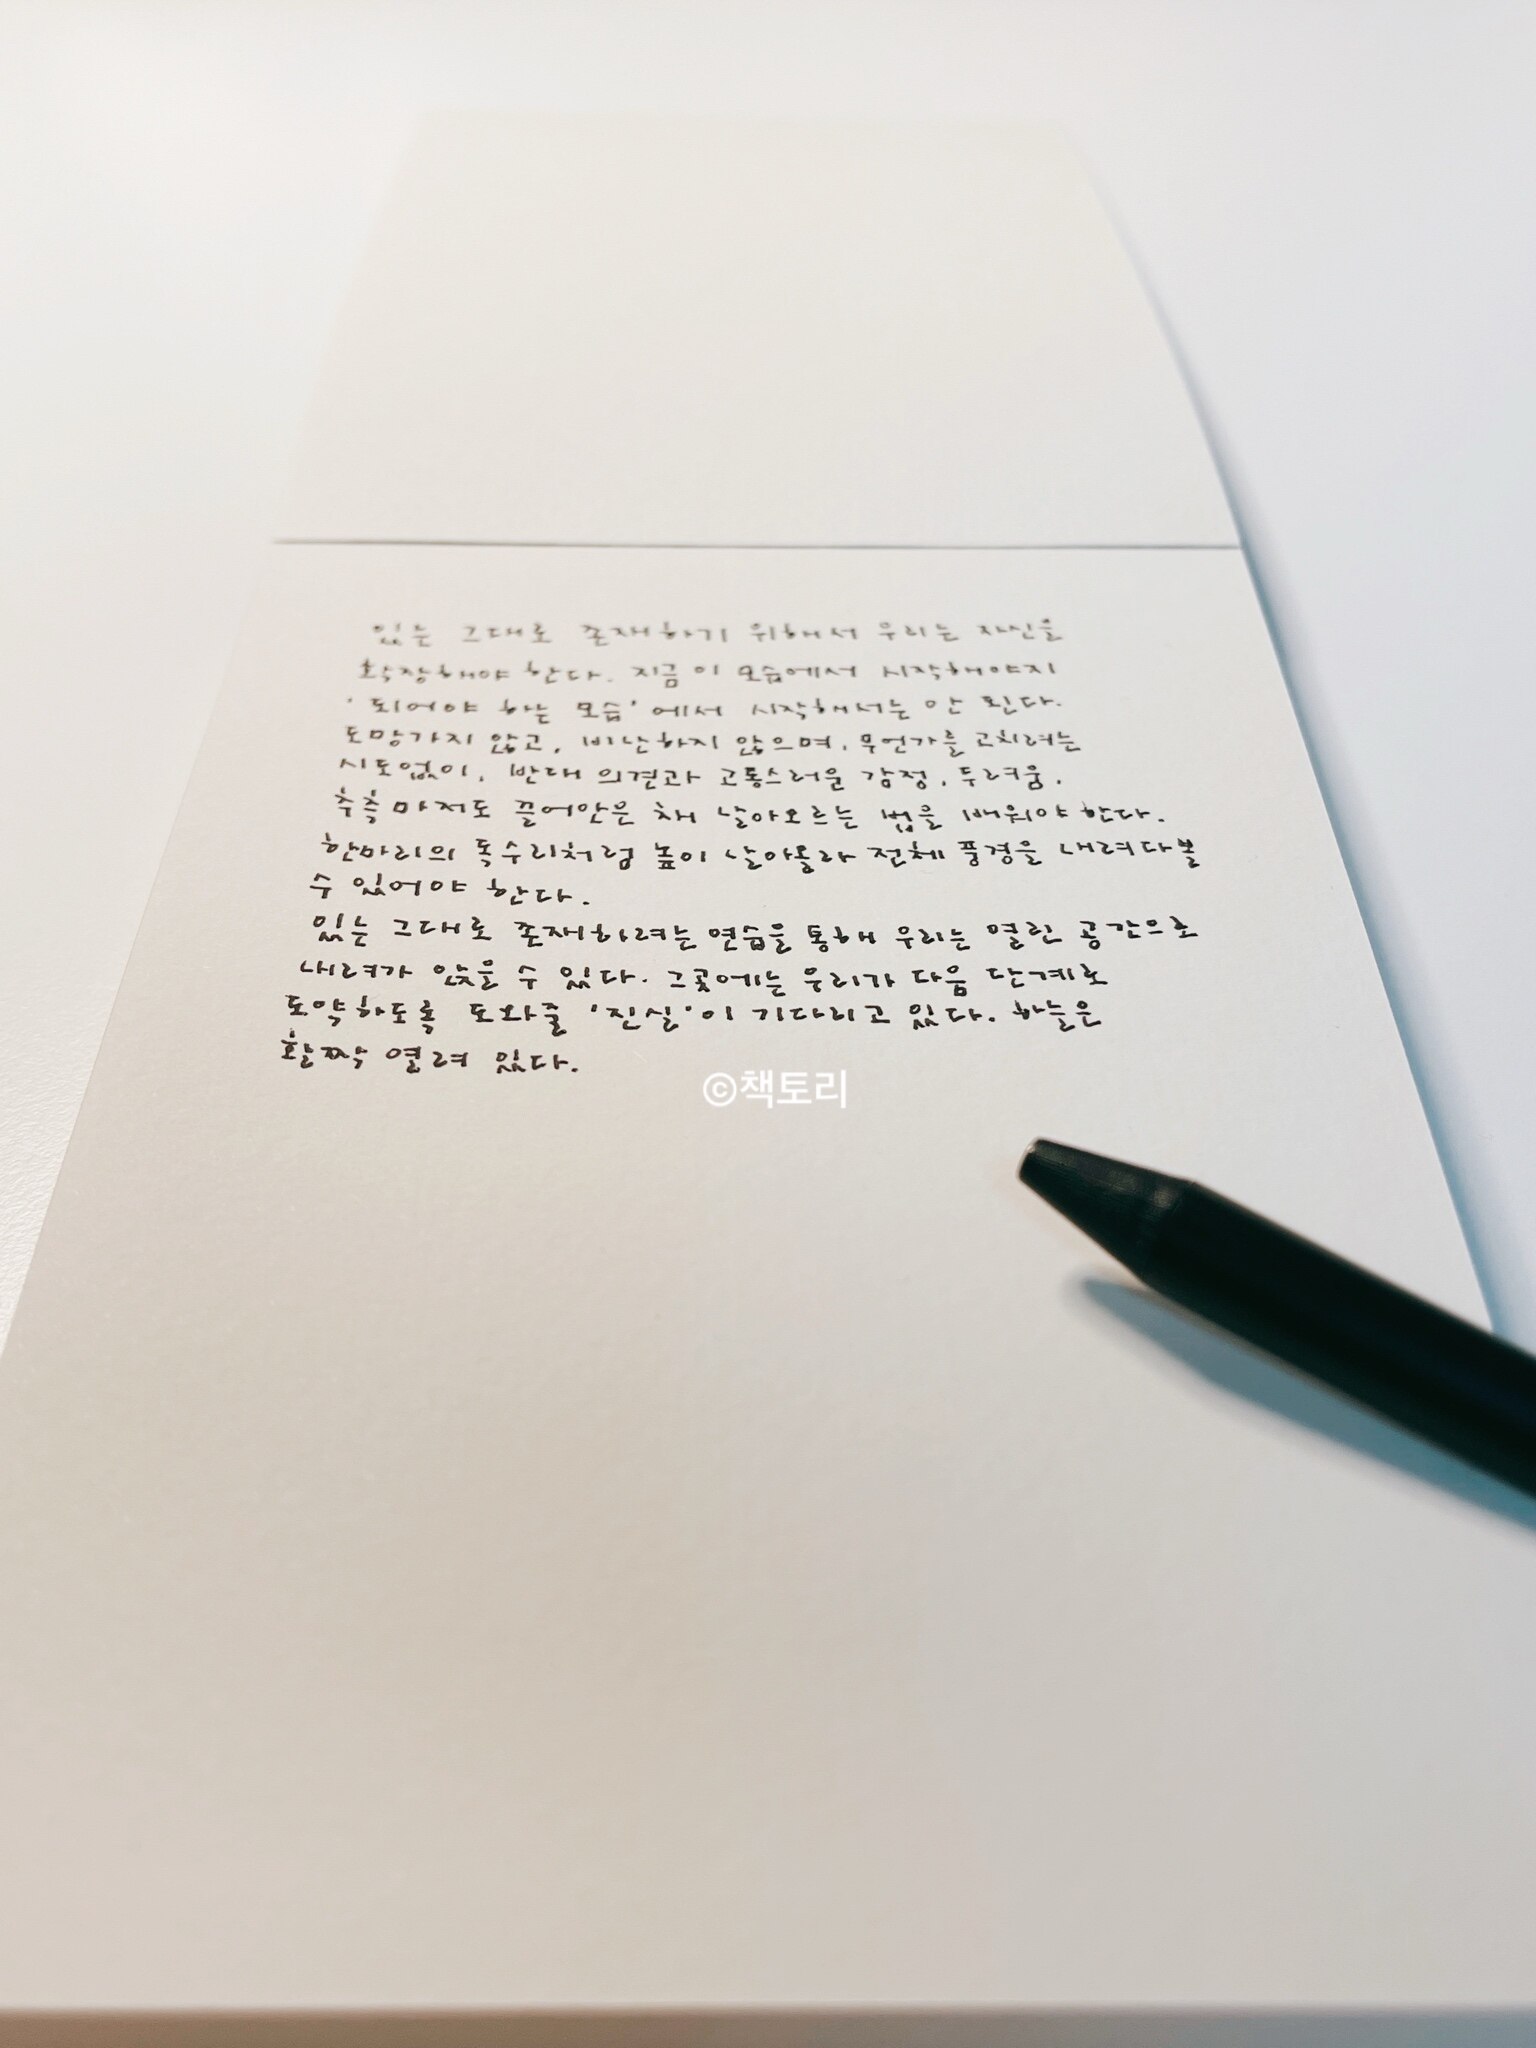 있는 그대로 존재하기 위해서 우리는 자신을
확장해야 한다. 지금 이 모습에서 시작해야지
'되어야 하는 모습'에서 시작해서는 안 된다.
도망가지 않고, 비난하지 않으며, 무언가를 고치려는
시도없이, 반대 의견과 고통스러운 감정, 두려움,
추측 마저도 끌어안은 채 날아오르는 법을 배워야 한다.
한마리의 독수리처럼 높이 날아올라 전체 풍경을 내려다볼
수 있어야 한다.
있는 그대로 존재하려는 연습을 통해 우리는 열린 공간으로
내려가 앉을 수 있다. 그곳에는 우리가 다음 단계로
도약하도록 도와줄 '진실'이 기다리고 있다. 하늘은
활짝 열려 있다.
©책토리